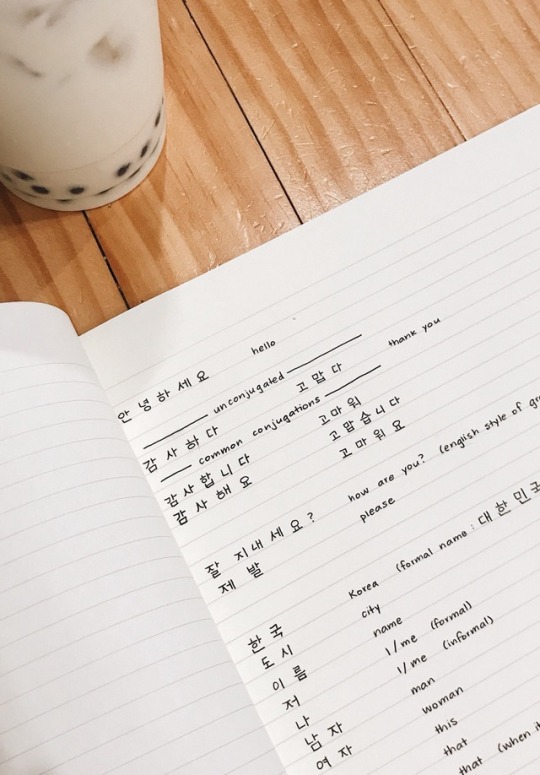 안녕하세요 hello
unconjugated
감사하다 고맙다 thank you
common conjugations
감사합니다 고마워
감사해요 고맙습니다
고마워요
잘 지내세요? how are you? (english style of
제발 please
한국 Korea (formal name: 대한민국
도시 city
이름 name
저 I/me (formal)
나 I/me (informal)
남자 man
여자 woman
this
that
that (when